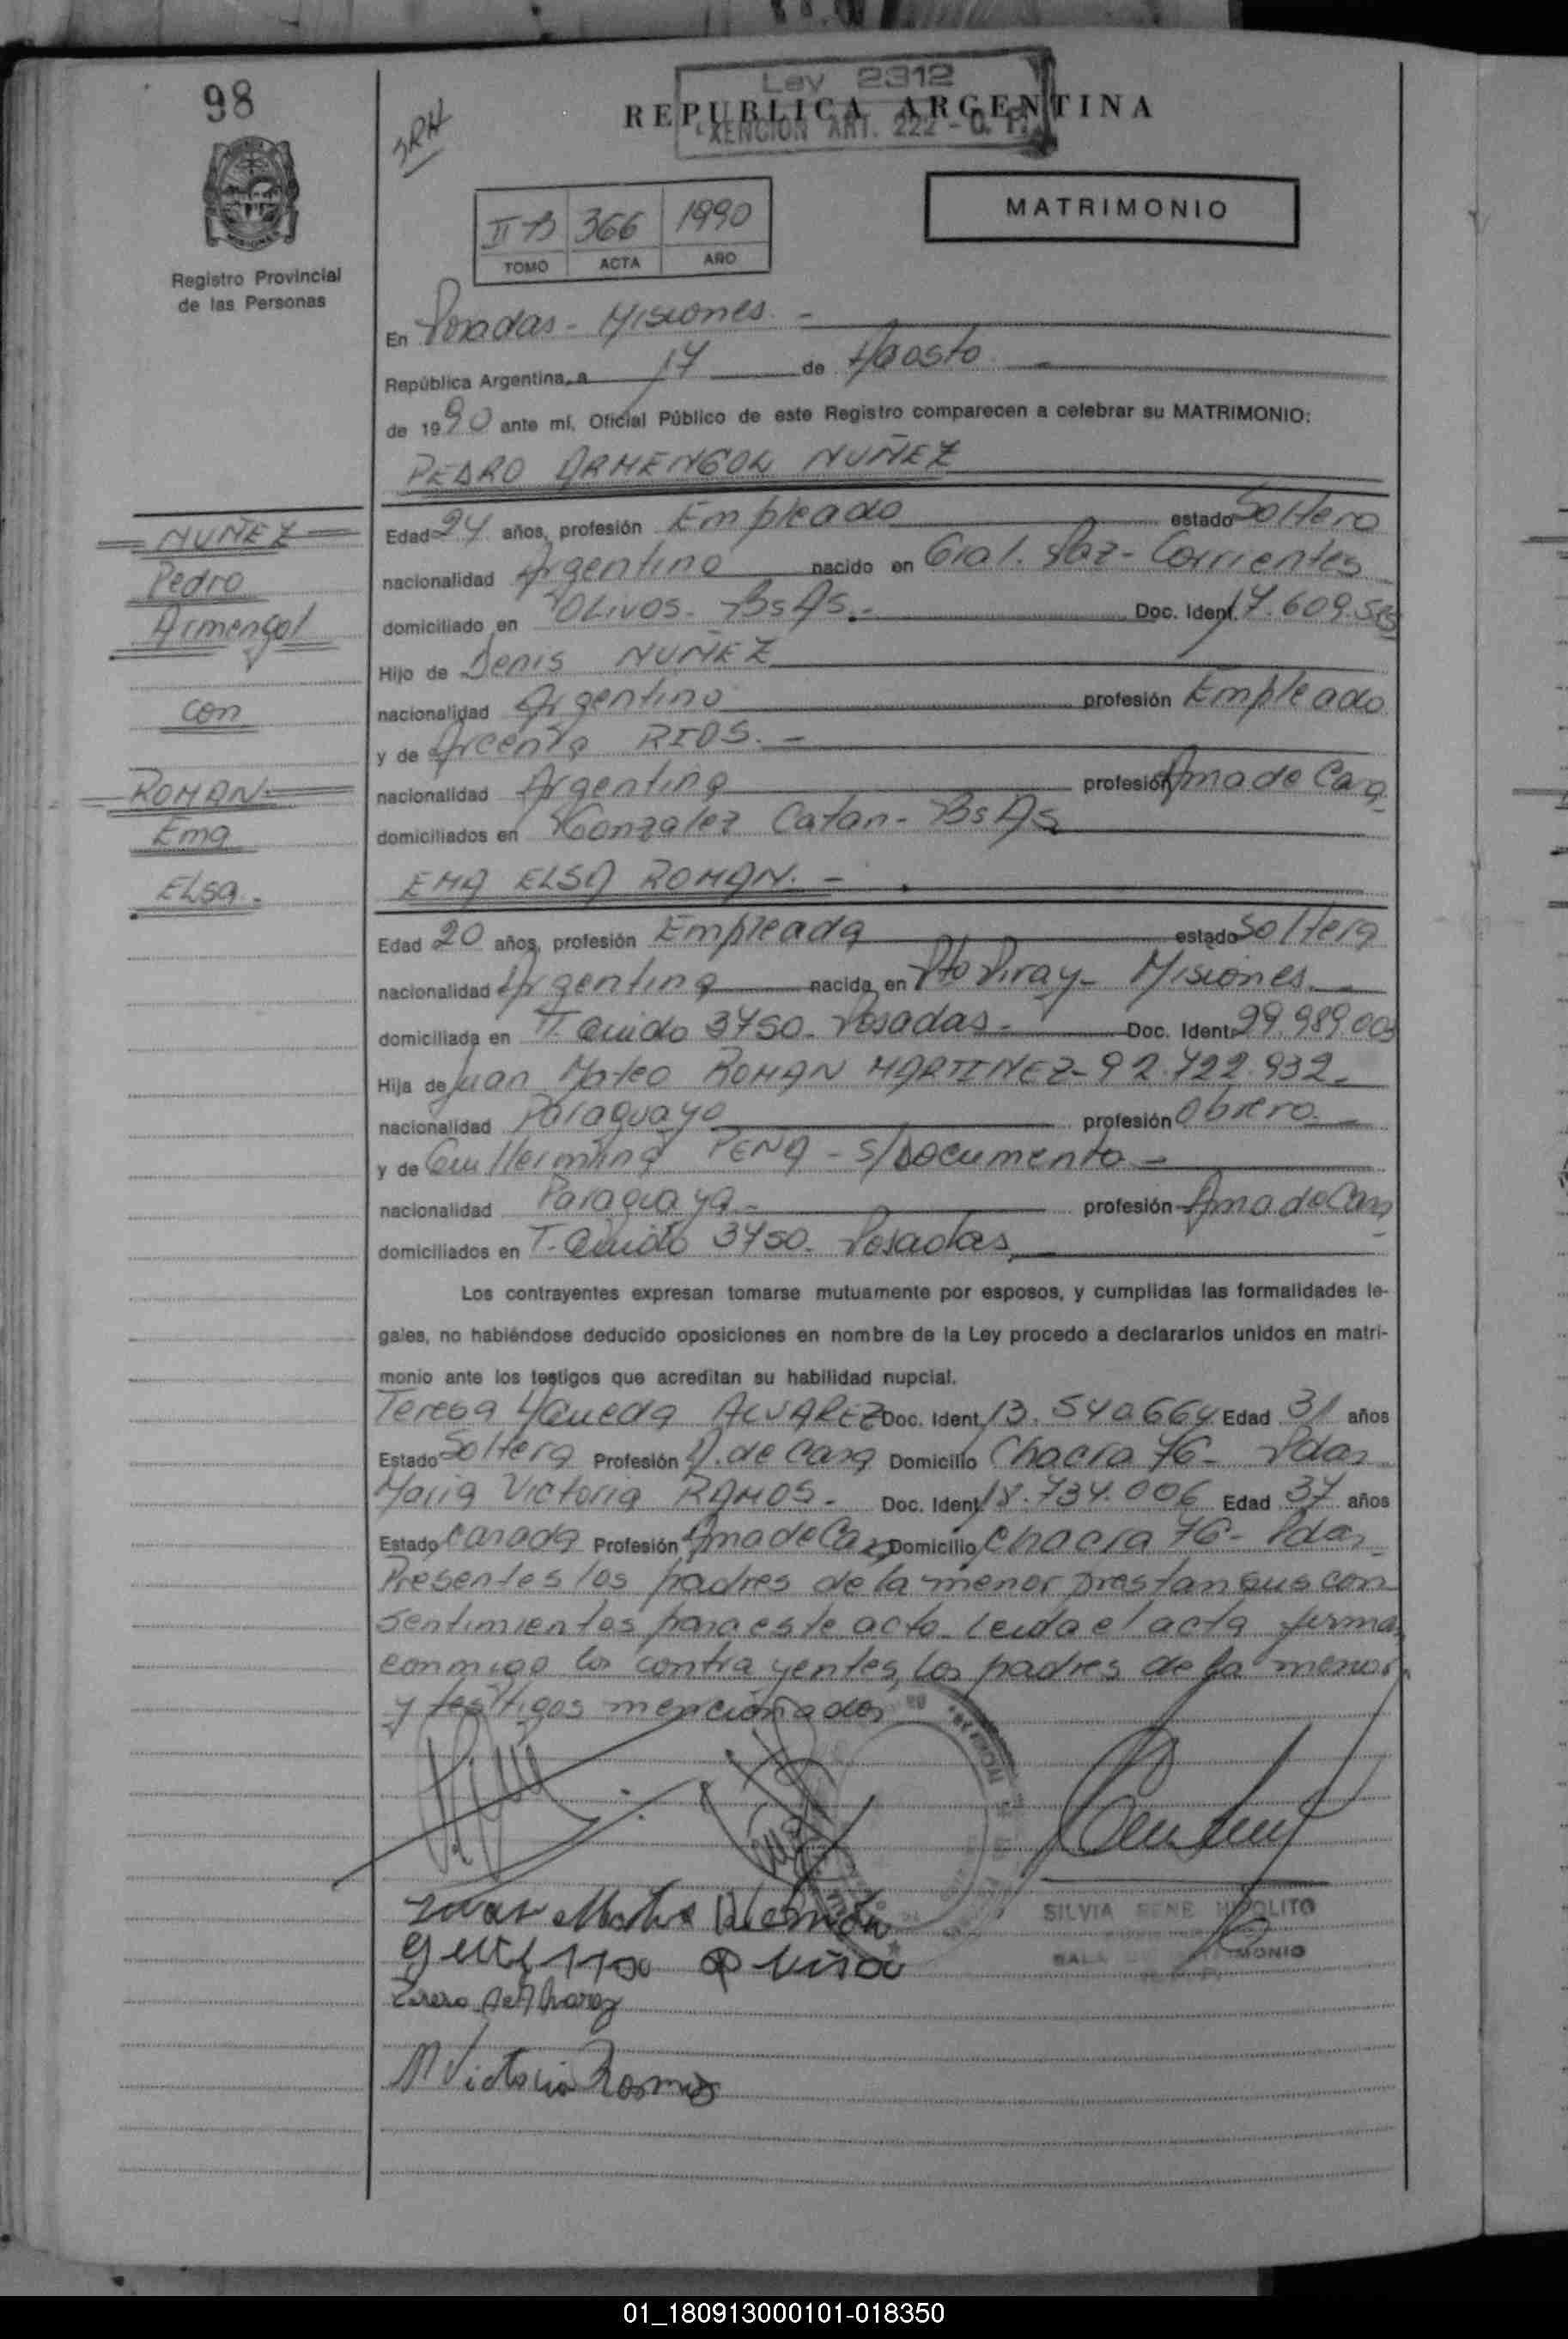 98
JRH
Ley 2312
REPUBLICA ARGENTINA
EXENCION ART. 222 - C. P.
MATRIMONIO
II B 366 1990
TOMO ACTA AÑO
Registro Provincial
de las Personas
En Posadas - Misiones. -
República Argentina, a 17 de Agosto. -
de 1990 ante mí, Oficial Público de este Registro comparecen a celebrar su MATRIMONIO:
PEDRO ARMENGOL NUÑEZ
NUÑEZ
Pedro
Armengol
con
ROMAN
Ema
Elsa.
Edad 24 años, profesión Empleado estado Soltero
nacionalidad Argentino nacido en Gral. Paz - Corrientes
domiciliado en Olivos - Bs As. - Doc. Ident. 17.609.
Hijo de Denis NUÑEZ
nacionalidad Argentino profesión Empleado
y de Arcenia RIOS. -
nacionalidad Argentina profesión Ama de Casa
domiciliados en Gonzalez Catan - Bs As
EMA ELSA ROMAN. -
Edad 20 años, profesión Empleada estado Soltera
nacionalidad Argentina nacida en Pto Piray - Misiones. -
domiciliada en T. Guido 3450 - Posadas - Doc. Ident. 29.989.003
Hija de Juan Mateo ROMAN MARTINEZ - 92.722.932.
nacionalidad Paraguayo profesión Obrero. -
y de Guillermina PEÑA - s/Documento -
nacionalidad Paraguaya - profesión Ama de Casa
domiciliados en T. Guido 3450. Posadas
Los contrayentes expresan tomarse mutuamente por esposos, y cumplidas las formalidades le-
gales, no habiéndose deducido oposiciones en nombre de la Ley procedo a declararlos unidos en matri-
monio ante los testigos que acreditan su habilidad nupcial.
Teresa ALVAREZ Doc. Ident. 13.540.664 Edad 31 años
Estado Soltera Profesión A. de Casa Domicilio Chacra 76 - Pdas
Maria Victoria RAMOS - Doc. Ident. 18.734.006 Edad 37 años
Estado Casada Profesión Ama de Casa Domicilio Chacra 76 - Pdas
Presentes los padres de la menor prestan sus con
sentimientos para este acto. Leida el acta firman
conmigo los contrayentes, los padres de la menor
y testigos mencionados
Juan Mateo Roman
SILVIA RENE HIPOLITO
SALA DE MATRIMONIO
Teresa de Alvarez
M Victoria Ramos
01_180913000101-018350